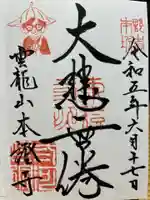 令和五年六月十七日
大悲無倦
雲龍山本證寺